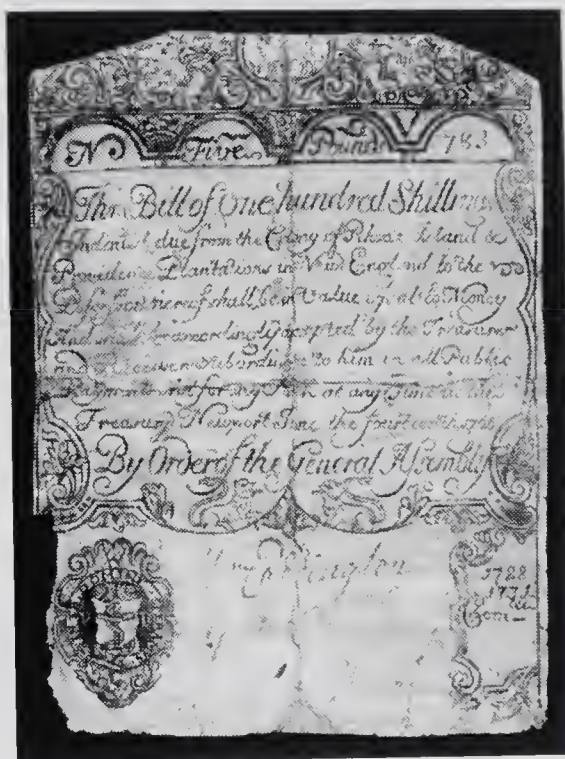 N Five Pounds 783
This Bill of One hundred Shillings
Indented due from the Colony of Rhode Island &
Providence Plantations in New England to the
Possessor thereof shall be in Value equal to Money
And shall be accordingly accepted by the Treasurer
and Receivers subordinate to him in all Public
Payments and for any Stock at any Time in the
Treasury Newport June the
By Order of the General Assembly
1728
Com